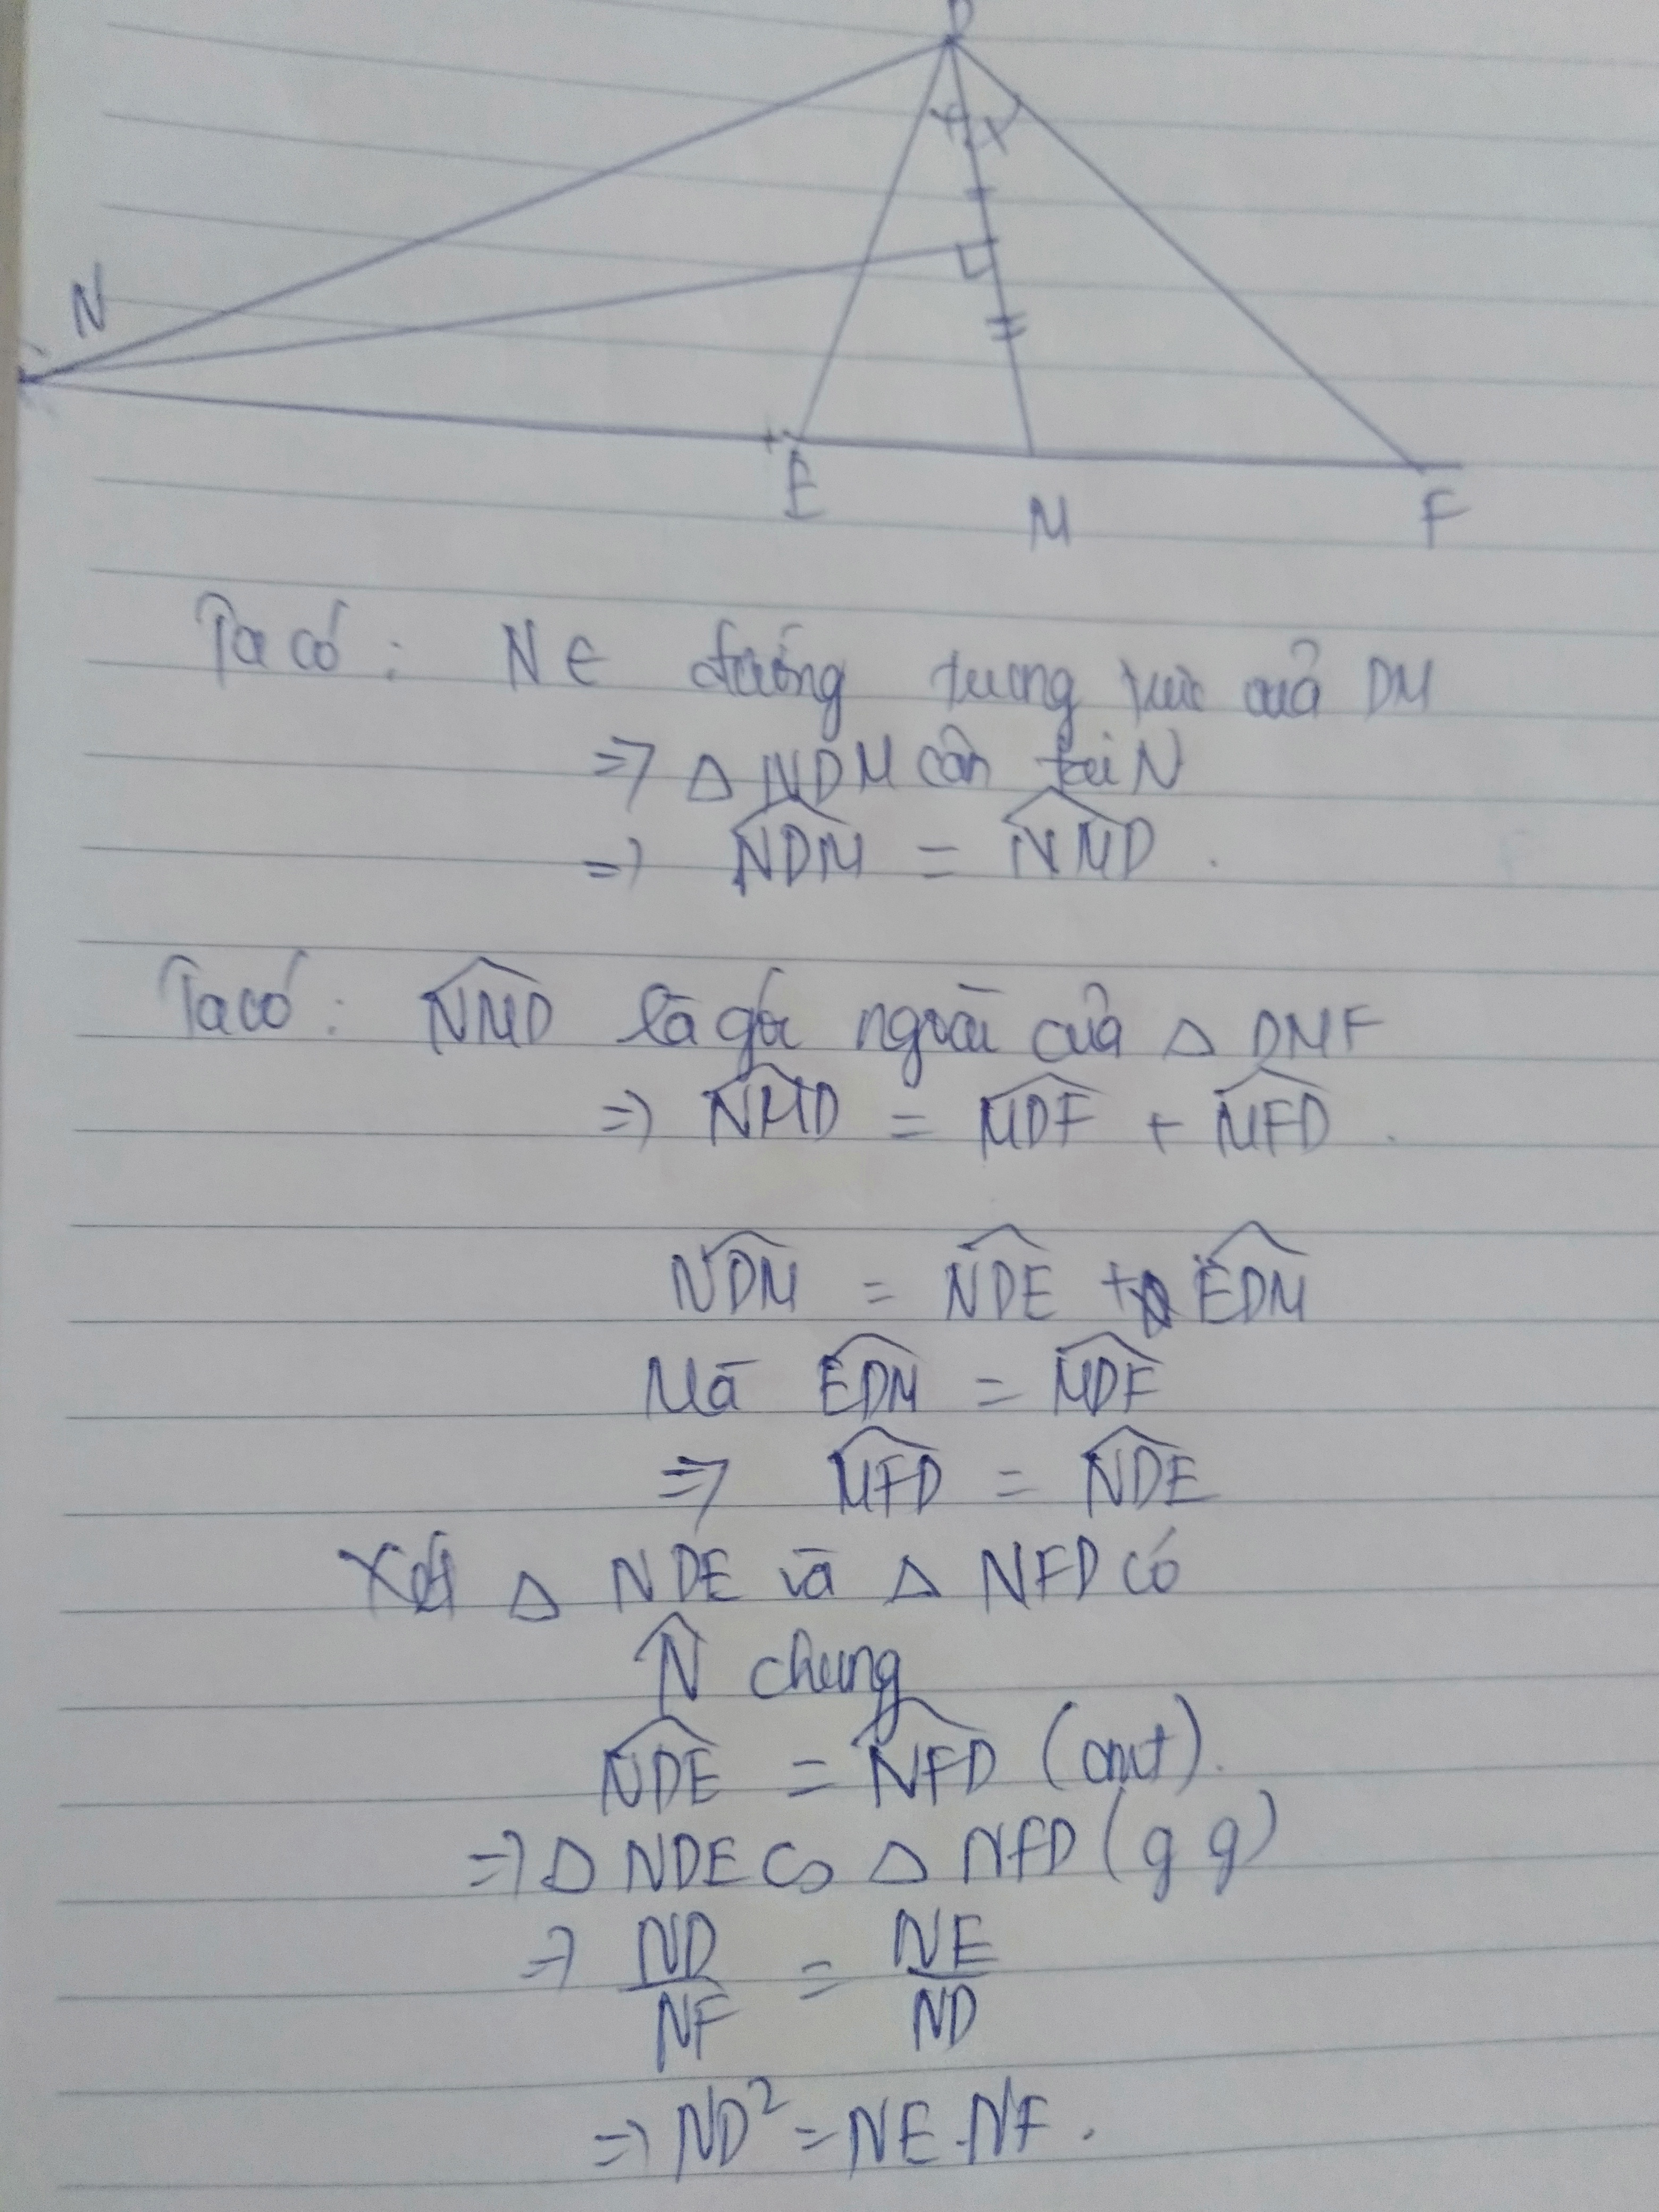 D
N
E M F
Ta có : N ∈ đường trung trực của DM
=> Δ NDM cân tại N
=> \widehat{NDM} = \widehat{NMD} .
Ta có : \widehat{NMD} là góc ngoài của Δ DMF
=> \widehat{NMD} = \widehat{MDF} + \widehat{MFD} .
\widehat{NDM} = \widehat{NDE} + \widehat{EDM}
Mà \widehat{EDM} = \widehat{MDF}
=> \widehat{MFD} = \widehat{NDE}
Xét Δ NDE và Δ NFD có
\widehat{N} chung
\widehat{NDE} = \widehat{NFD} (cmt).
=> Δ NDE ∽ Δ NFD (g g)
=> \frac{ND}{NF} = \frac{NE}{ND}
=> ND² = NE . NF .